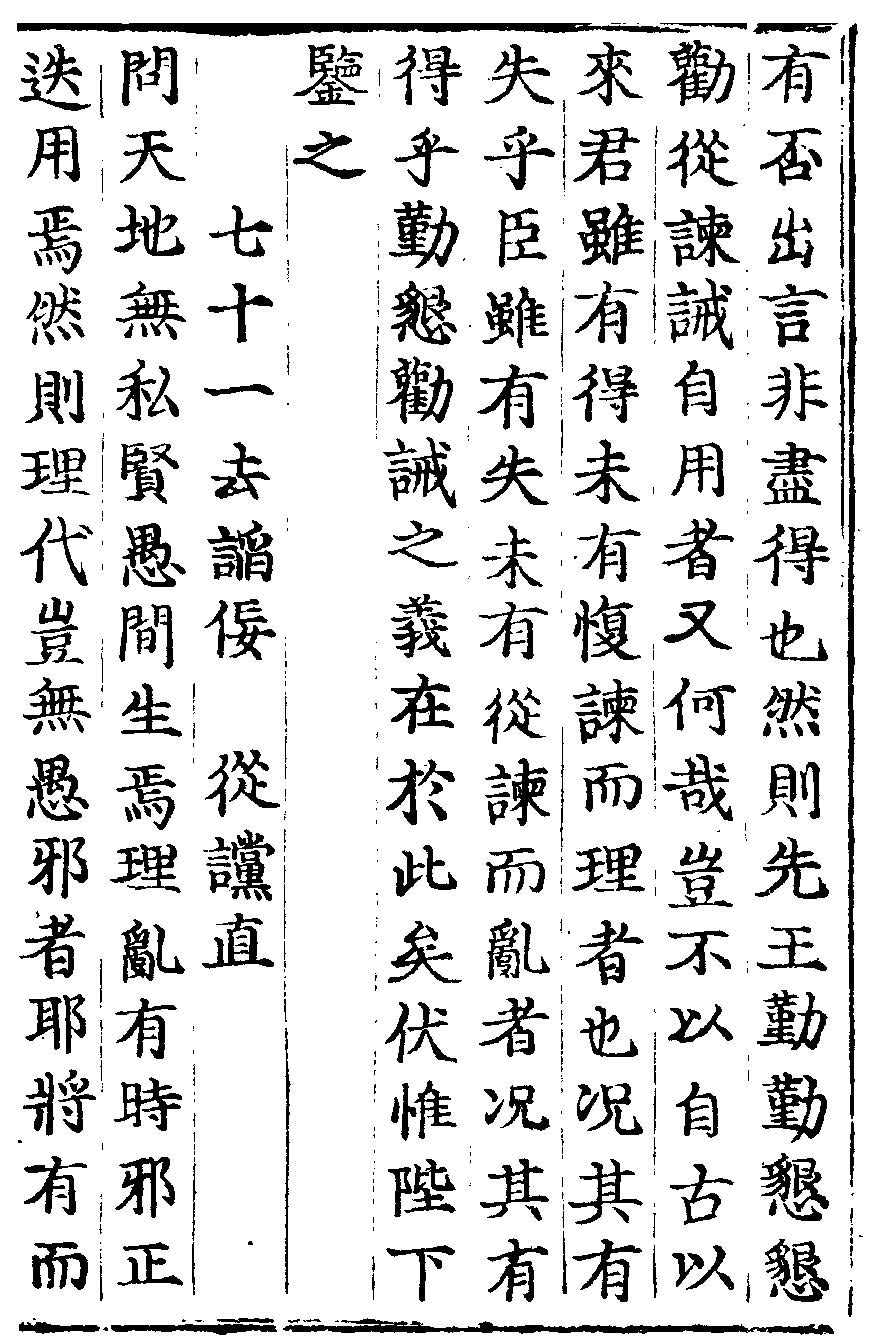 有否出言非盡得也然則先王勤勤懇懇
勸從諫誡自用者又何哉豈不以自古以
來君雖有得未有愎諫而理者也况其有
失乎臣雖有失未有從諫而亂者况其有
得乎勤懇勸誡之義在於此矣伏惟陛下
鑒之
七十一去謟佞　從讜直
問天地無私賢愚間生焉理亂有時邪正
迭用焉然則理代豈無愚邪者耶將有而